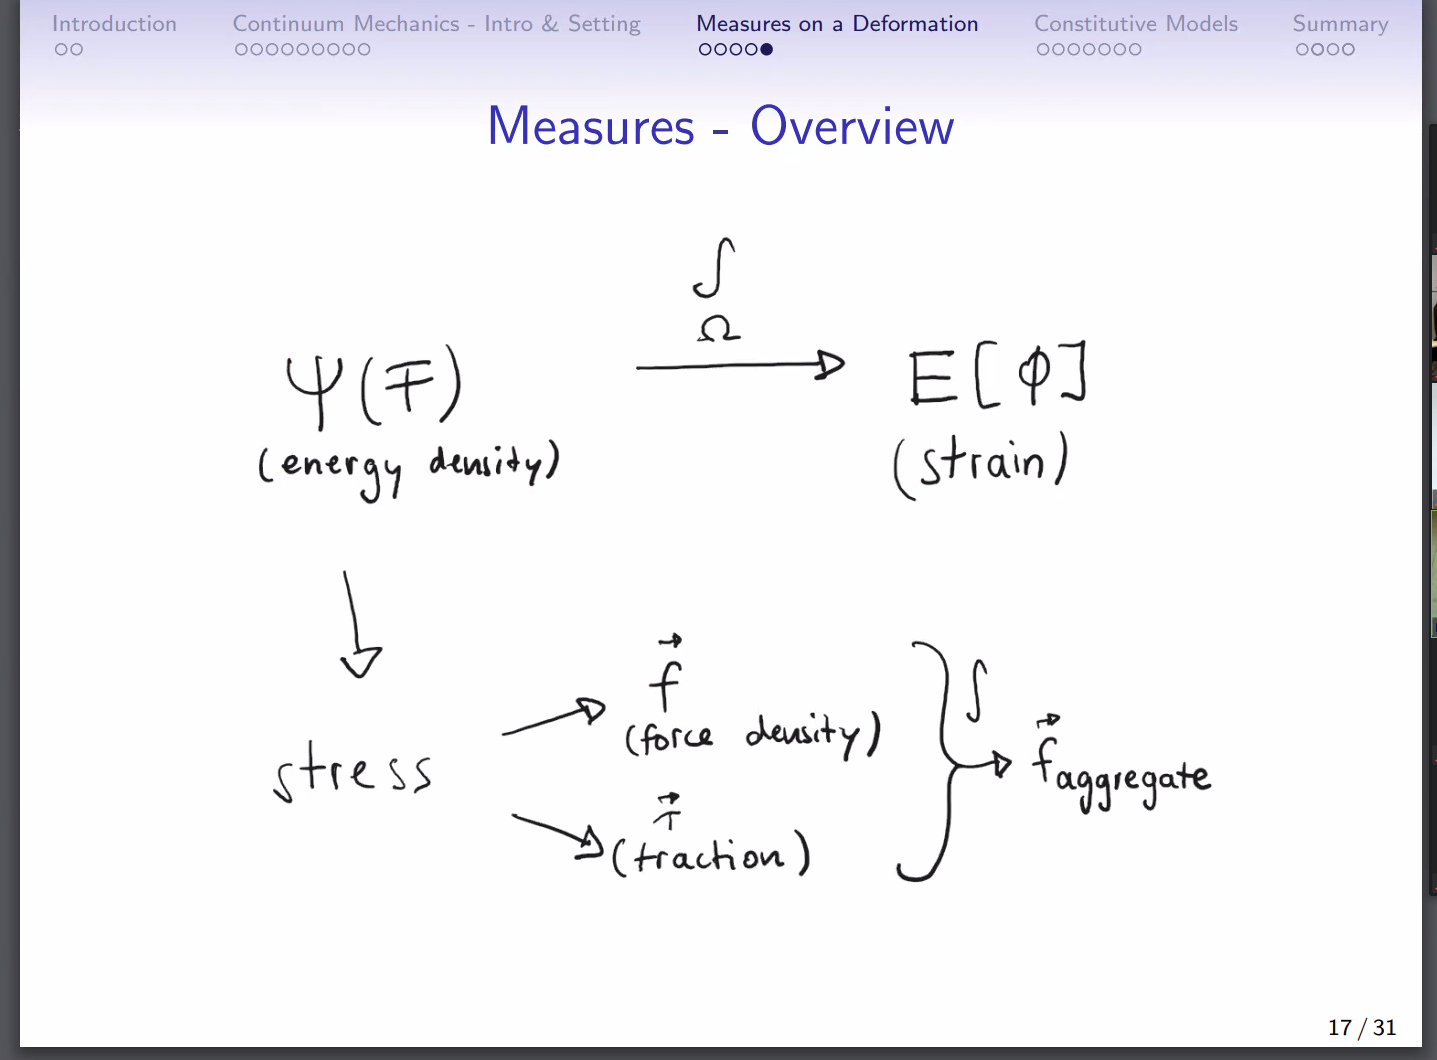 Introduction Continuum Mechanics - Intro & Setting Measures on a Deformation Constitutive Models Summary
Measures - Overview
∫
Ω
Ψ(F) E[ϕ]
(energy density) (strain)
f
(force density)
∫
stress f aggregate
τ
(traction)
17 / 31